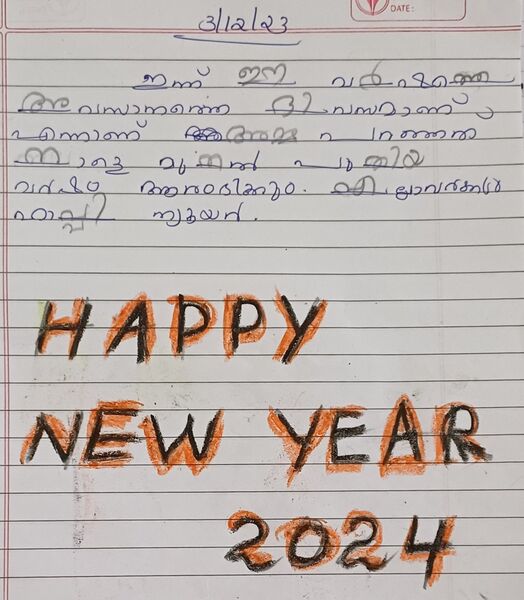 DATE:
31/12/23
ഇന്ന് ഈ വർഷത്തെ
അവസാനത്തെ ദിവസമാണ്
എന്നാണ് അമ്മ പറഞ്ഞത്
നാളെ മുതൽ പുതിയ
വർഷം ആരംഭിക്കും. എല്ലാവർക്കും
ഹാപ്പി ന്യൂയർ.
HAPPY
NEW YEAR
2024